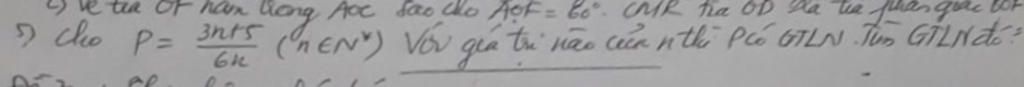 c) Vẽ tia OF nằm trong AOC sao cho AOF = 60°. CMR tia OD là tia phân giác
5) Cho P = 3n+5/6n (n ∈ N*) Với giá trị nào của n thì P có GTLN. Tìm GTLN đó?